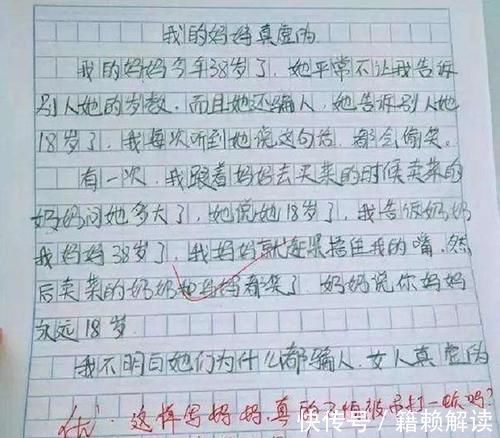 我的妈妈真虚伪
我的妈妈今年38岁了，她平常不让我告诉
别人她的岁数，而且她还骗人，她告诉别人她
18岁了，我每次听到她说这句话，都会偷笑。
有一次，我跟着妈妈去买菜的时候卖菜的
奶奶问她多大了，她说她18岁了，我告诉奶奶
我妈妈38岁了，我妈妈就赶紧捂住我的嘴，然
后卖菜的奶奶和妈妈都笑了，奶奶说你妈妈
永远18岁
我不明白她们为什么都骗人，女人真虚伪
优 这样写妈妈，真的不怕被吊打一顿吗？
快传号/籍赖解读